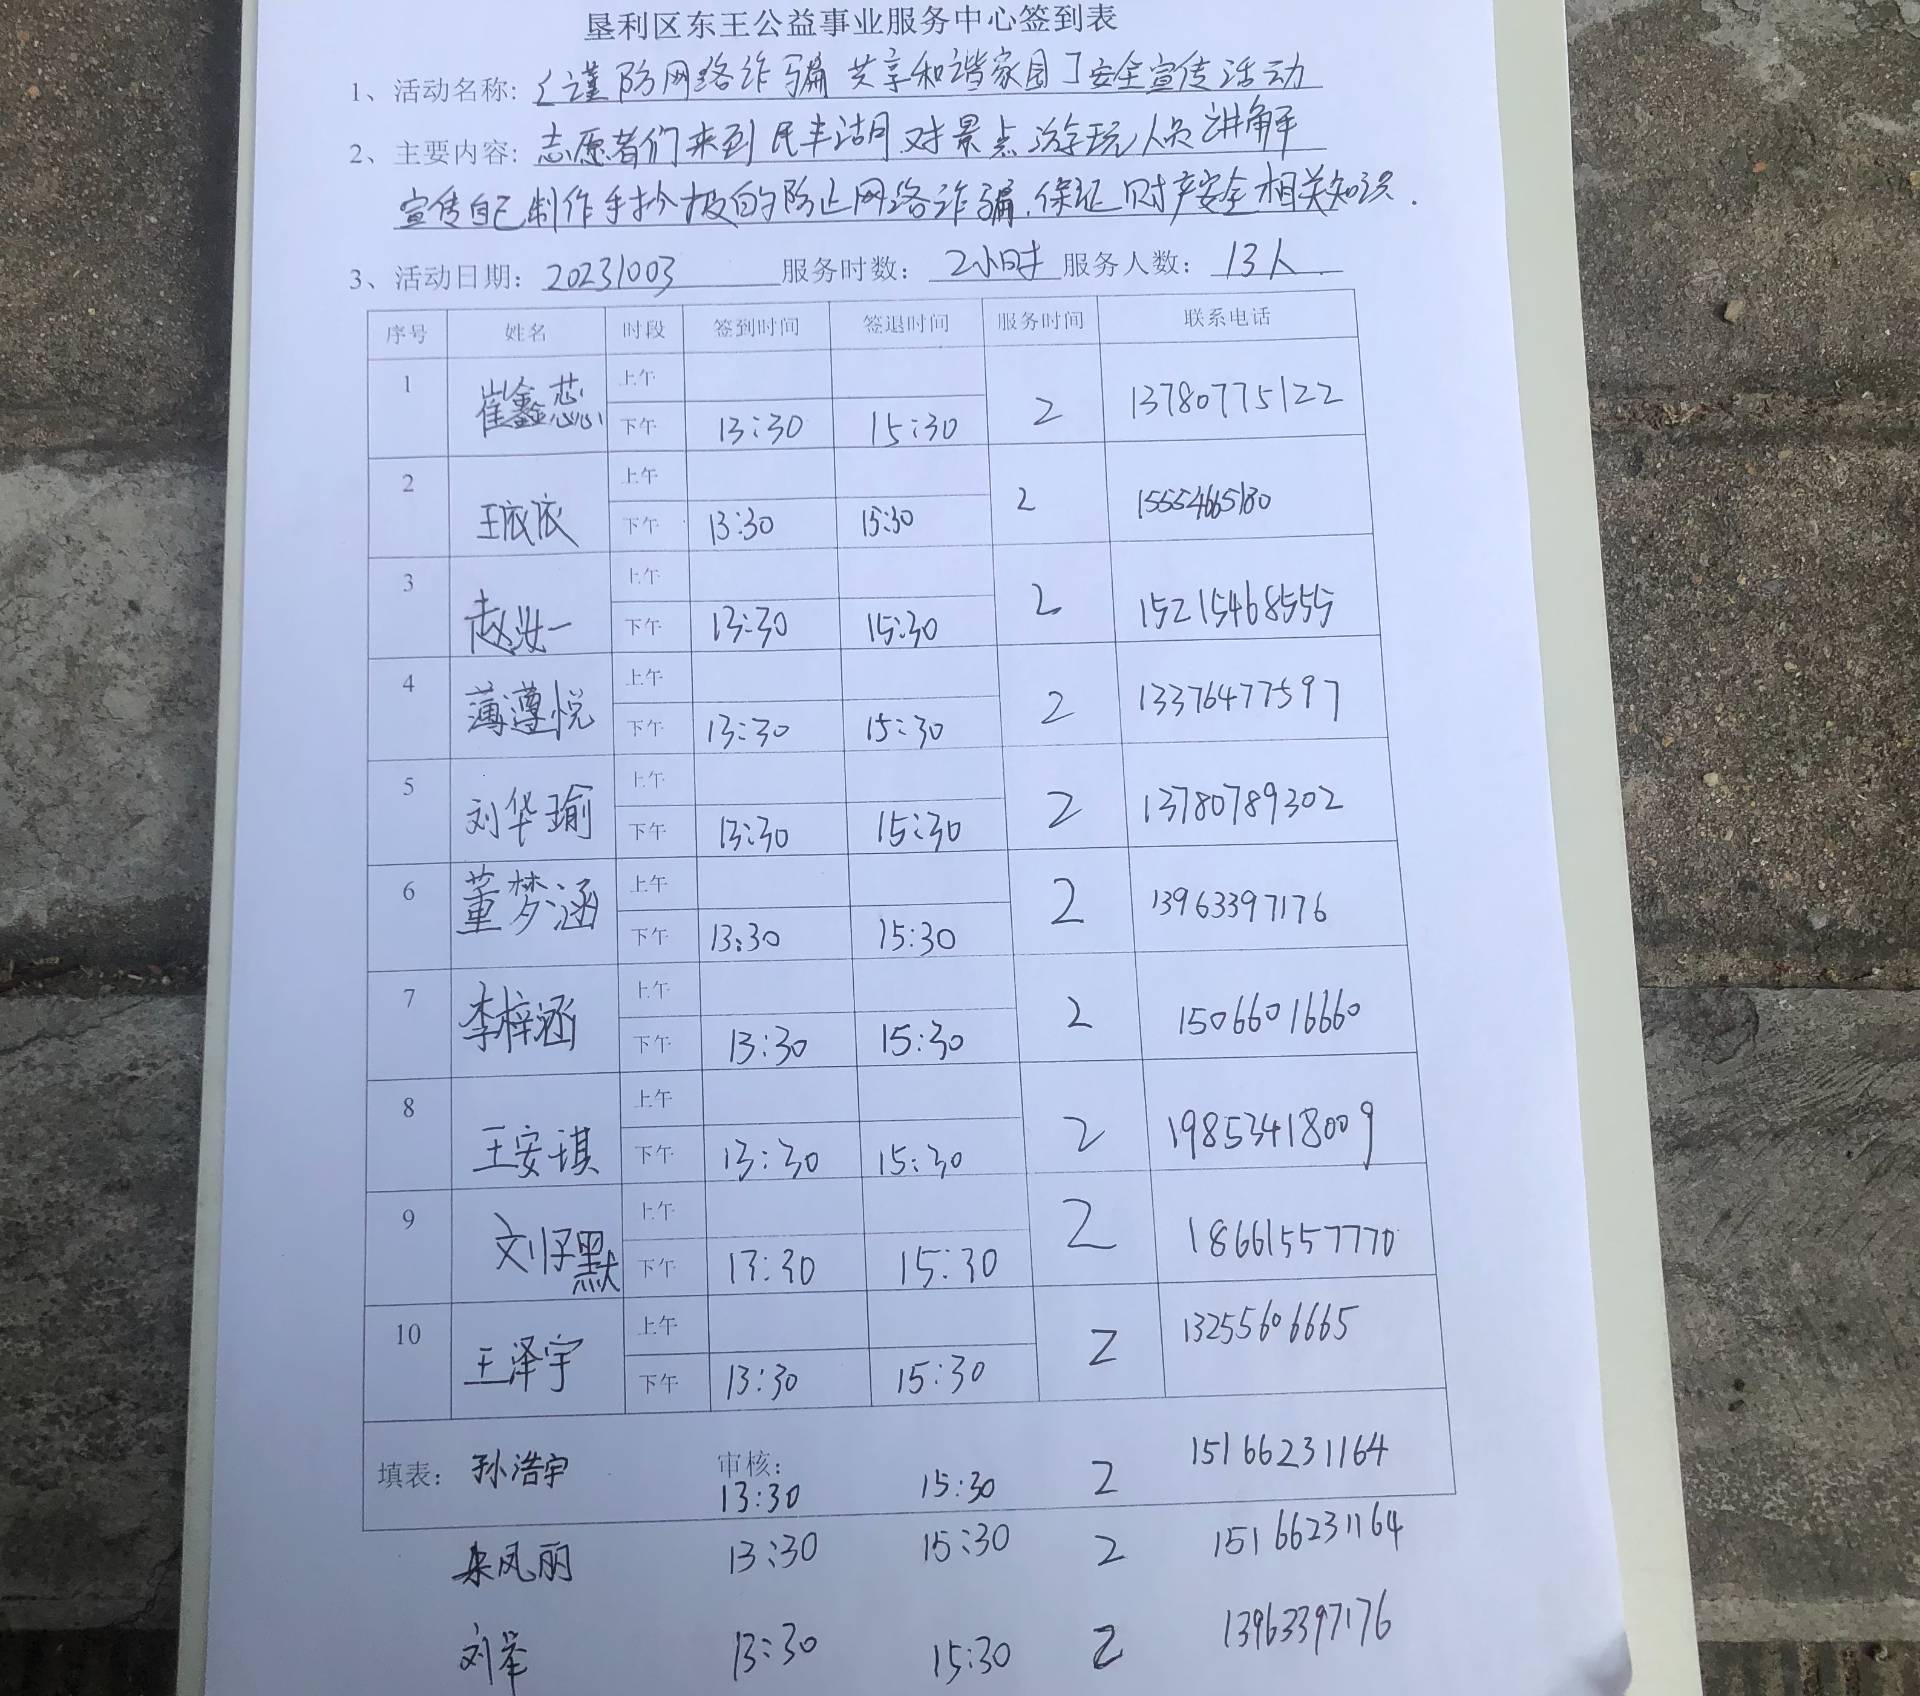 垦利区东王公益事业服务中心签到表
1、活动名称: 《谨防网络诈骗 共享和谐家园》安全宣传活动
2、主要内容: 志愿者们来到民丰湖对景点游玩人员讲解
宣传自己制作手抄报的防止网络诈骗,保证财产安全相关知识.
3、活动日期: 20231003 服务时数: 2小时 服务人数: 13人
序号 姓名 时段 签到时间 签退时间 服务时间 联系电话
1 崔鑫蕊 上午 2 13780775122
下午 13:30 15:30
2 王依依 上午 2 15554665180
下午 13:30 15:30
3 赵汝一 上午 2 15215468555
下午 13:30 15:30
4 薄遵悦 上午 2 13376477597
下午 13:30 15:30
5 刘华瑜 上午 2 13780789302
下午 13:30 15:30
6 董梦涵 上午 2 13963397176
下午 13:30 15:30
7 李梓涵 上午 2 15066016660
下午 13:30 15:30
8 王安琪 上午 2 19853418009
下午 13:30 15:30
9 刘子默 上午 2 18661557770
下午 13:30 15:30
10 王泽宇 上午 2 13255606665
下午 13:30 15:30
填表: 孙浩宇 审核: 13:30 15:30 2 15166231164
凤丽 13:30 15:30 2 15166231164
刘举 13:30 15:30 2 13963397176